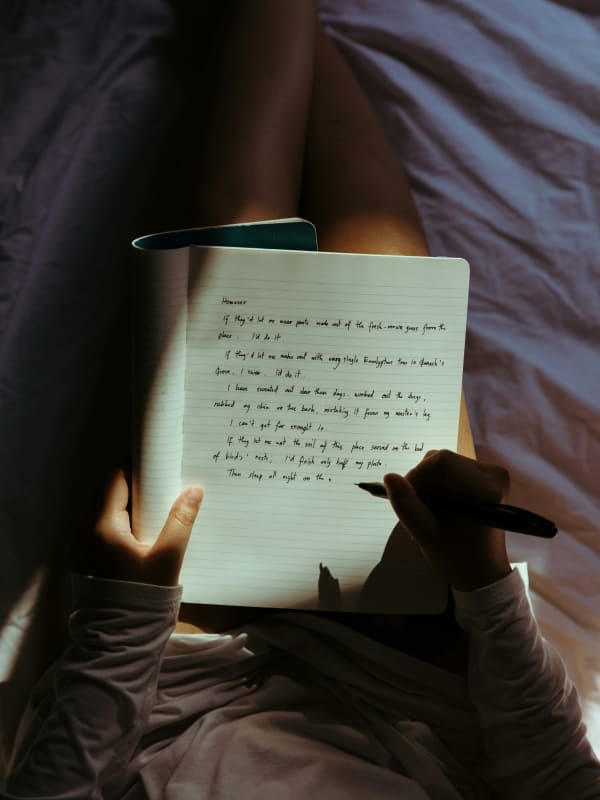 However
If they'd let me wear pants made out of the fresh-mown grass from the
place. I'd do it.
If they'd let me make out with every single Eucalyptus tree in
Grove, I swear. I'd do it.
I have sweated out dear these days, worked out the days,
rubbed my chin on the bark, mistaking it from my master's leg
I can't get far enought in.
If they let me eat the soil of this place served on the bed
of birds' nests; I'd finish only half my plate.
Then sleep all night on the